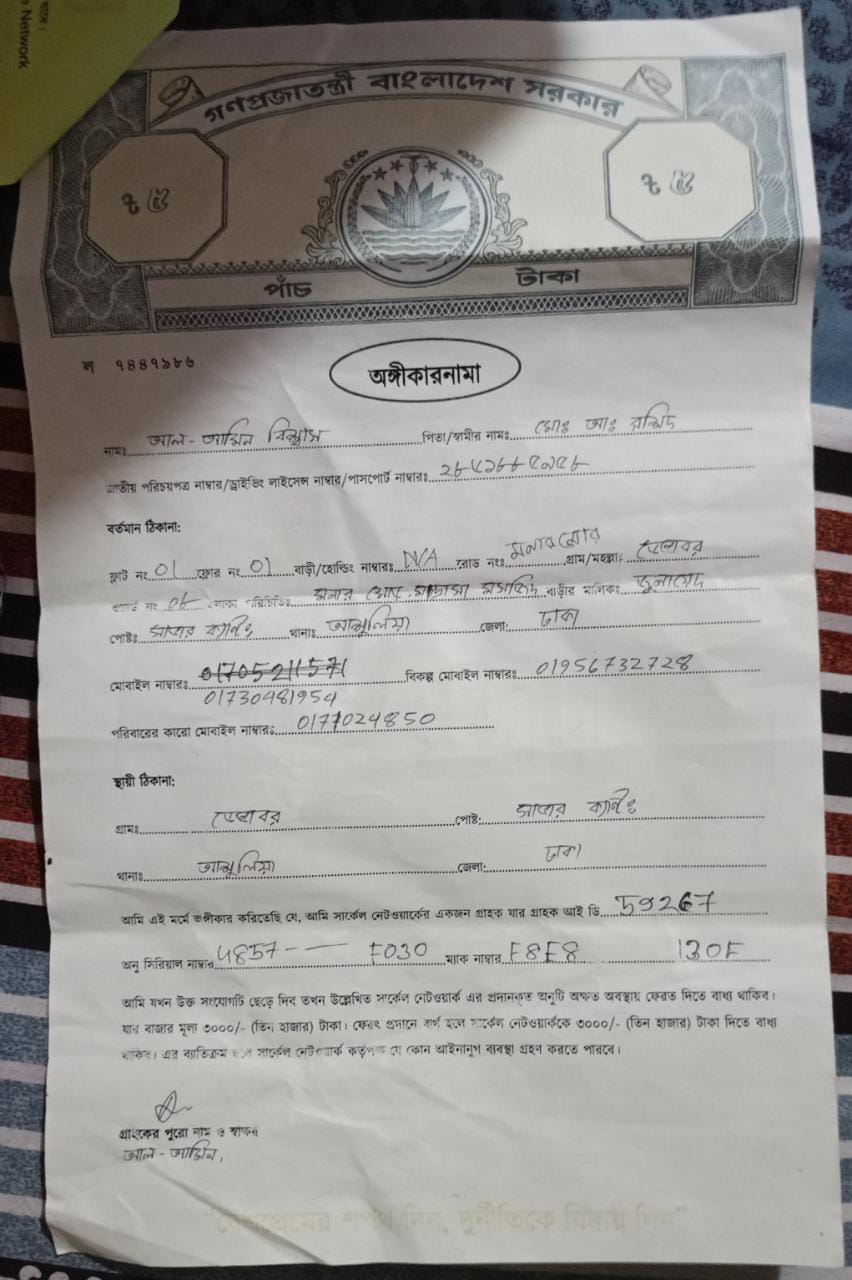 Network
গণপ্রজাতন্ত্রী বাংলাদেশ সরকার
৳ ৫ ৳ ৫
পাঁচ টাকা
ল ৭৪৪৭৯৮৬
অঙ্গীকারনামা
নামঃ আল-আমিন বিশ্বাস পিতা/স্বামীর নামঃ মোঃ আঃ রশিদ
জাতীয় পরিচয়পত্র নাম্বার/ড্রাইভিং লাইসেন্স নাম্বার/পাসপোর্ট নাম্বারঃ
বর্তমান ঠিকানা:
ফ্লাট নং 01 ফ্লোর নং 01 বাড়ী/হোল্ডিং নাম্বারঃ N/A রোড নংঃ গ্রাম/মহল্লাঃ
ওয়ার্ড নং এলাকা পরিচিতিঃ মাদ্রাসা মসজিদ বাড়ীর মালিকঃ জুনায়েদ
পোষ্টঃ সাভার ক্যান্টঃ থানাঃ আশুলিয়া জেলা: ঢাকা
মোবাইল নাম্বারঃ 01705211571 বিকল্প মোবাইল নাম্বারঃ 01956732728
01730481954
পরিবারের কারো মোবাইল নাম্বারঃ 0177024850
স্থায়ী ঠিকানা:
গ্রামঃ পোষ্ট: সাভার ক্যান্টঃ
থানাঃ আশুলিয়া জেলা: ঢাকা
আমি এই মর্মে অঙ্গীকার করিতেছি যে, আমি সার্কেল নেটওয়ার্কের একজন গ্রাহক যার গ্রাহক আই ডি 59267
অনু সিরিয়াল নাম্বার 4857-- — F030 ম্যাক নাম্বার F8E8 130F
আমি যখন উক্ত সংযোগটি ছেড়ে দিব তখন উল্লেখিত সার্কেল নেটওয়ার্ক এর প্রদানকৃত অনুটি অক্ষত অবস্থায় ফেরত দিতে বাধ্য থাকিব।
যার বাজার মূল্য ৩০০০/- (তিন হাজার) টাকা। ফেরৎ প্রদানে ব্যর্থ হলে সার্কেল নেটওয়ার্ককে ৩০০০/- (তিন হাজার) টাকা দিতে বাধ্য
থাকিব। এর ব্যতিক্রম হলে সার্কেল নেটওয়ার্ক কর্তৃপক্ষ যে কোন আইনানুগ ব্যবস্থা গ্রহন করতে পারবে।
গ্রাহকের পুরো নাম ও স্বাক্ষর
আল-আমিন,
"দেশপ্রেমের শপথ নিন, দুর্নীতিকে বিদায় দিন"